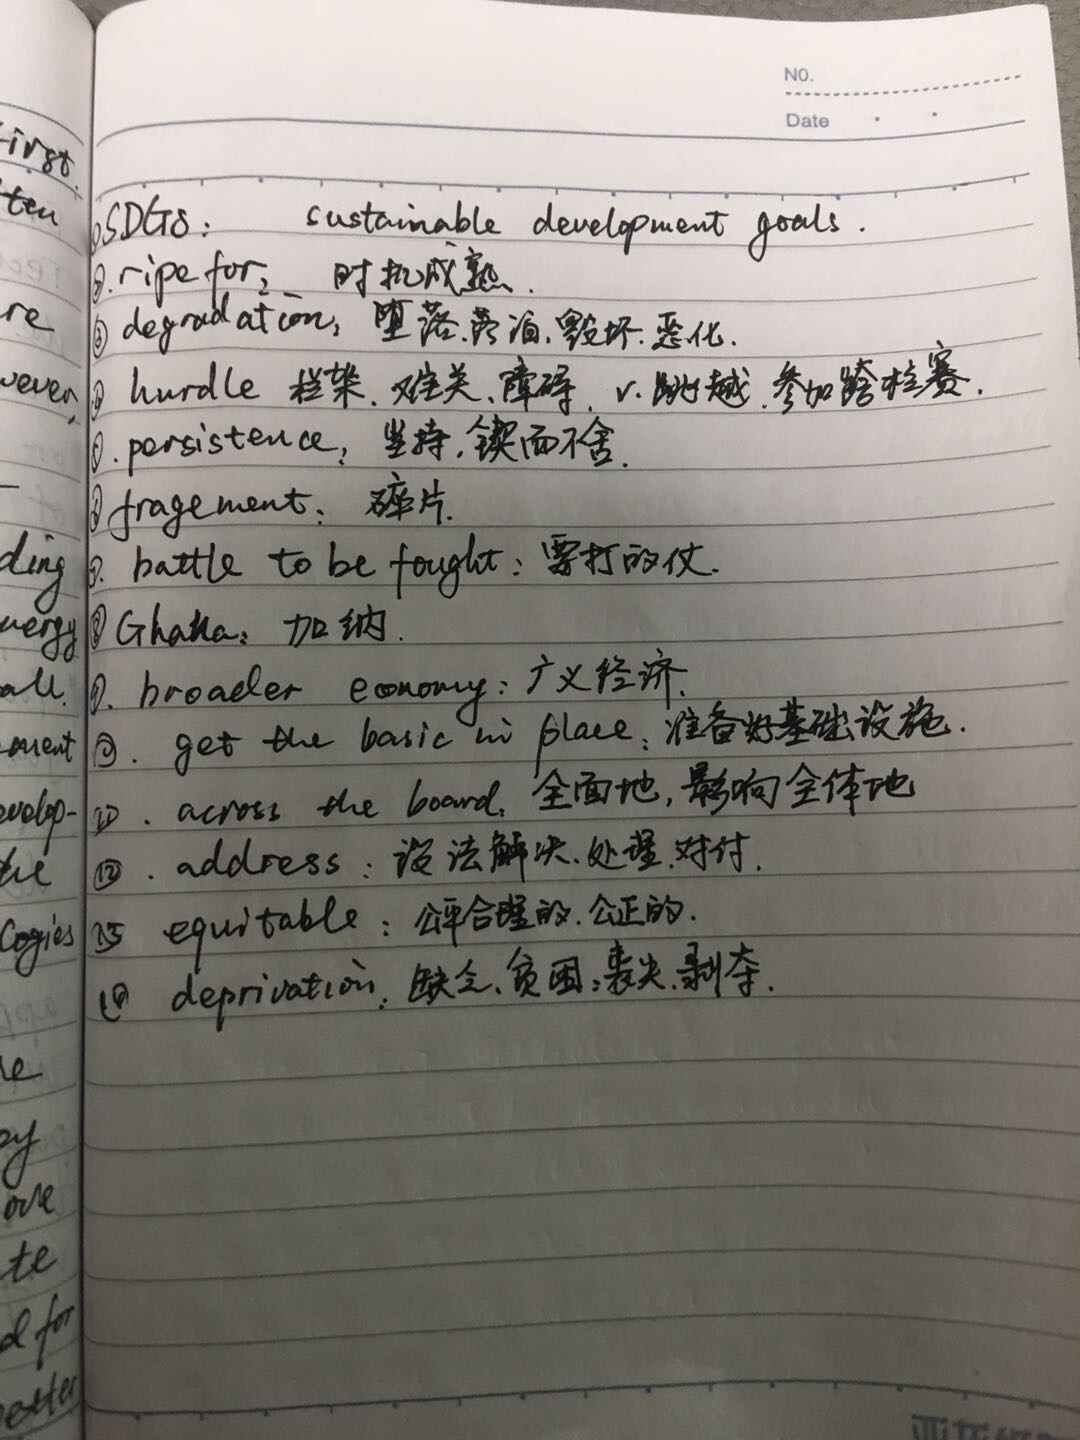 NO.
Date
first.
ten
re
wever,
ding
nergy
all.
ment
evelop-
the
logies
re
py
ove
te
d for
better
①SDGs: sustainable development goals.
②.ripe for: 时机成熟.
③ degradation: 堕落.落泊.毁坏.恶化.
④ hurdle 栏架.难关.障碍. v.跳越.参加跨栏赛.
⑤.persistence: 坚持.锲而不舍.
⑥fragement: 碎片.
⑦. battle to be fought: 要打的仗.
⑧Ghana: 加纳.
⑨. broader economy: 广义经济.
⑩. get the basic in place: 准备好基础设施.
⑪. across the board: 全面地,影响全体地
⑫. address: 设法解决.处理.对付.
⑬ equitable: 公平合理的.公正的.
⑭ deprivation: 缺乏、贫困;丧失.剥夺.